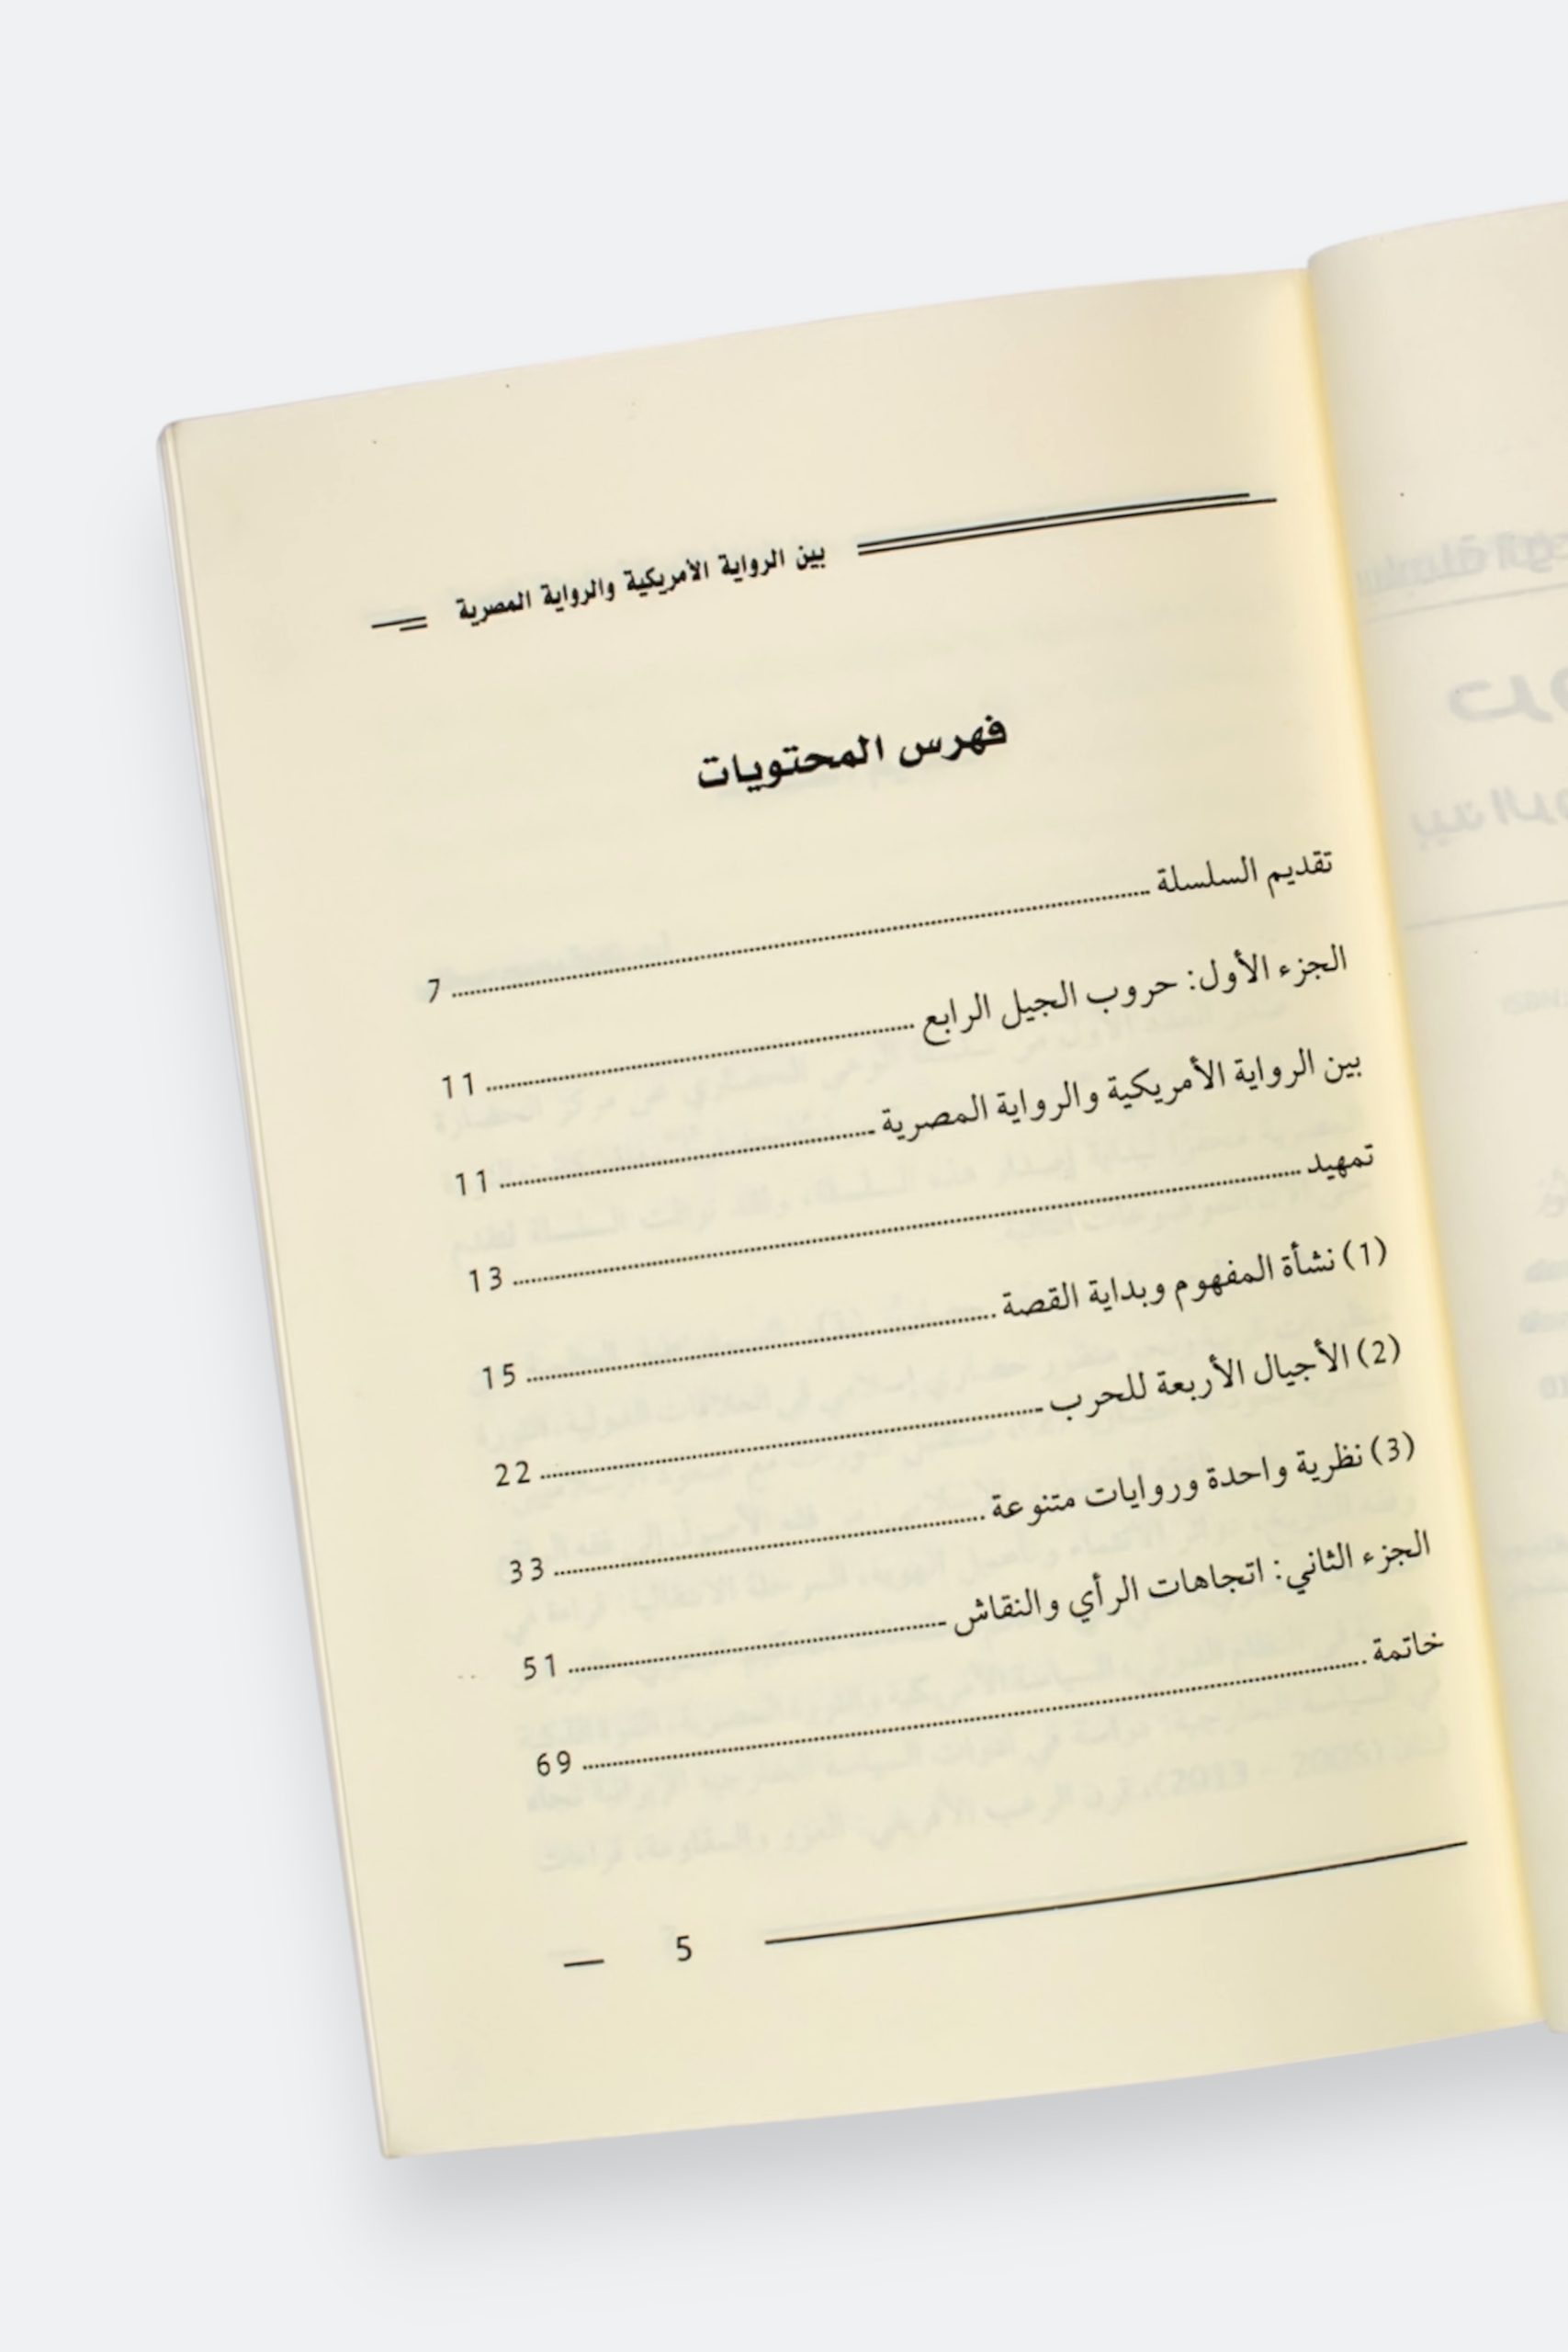 بين الرواية الأمريكية والرواية المصرية
فهرس المحتويات
تقديم السلسلة ........ 7
الجزء الأول: حروب الجيل الرابع ........ 11
بين الرواية الأمريكية والرواية المصرية ........ 11
تمهيد ........ 13
(1) نشأة المفهوم وبداية القصة ........ 15
(2) الأجيال الأربعة للحرب ........ 22
(3) نظرية واحدة وروايات متنوعة ........ 33
الجزء الثاني: اتجاهات الرأي والنقاش ........ 51
خاتمة ........ 69
5